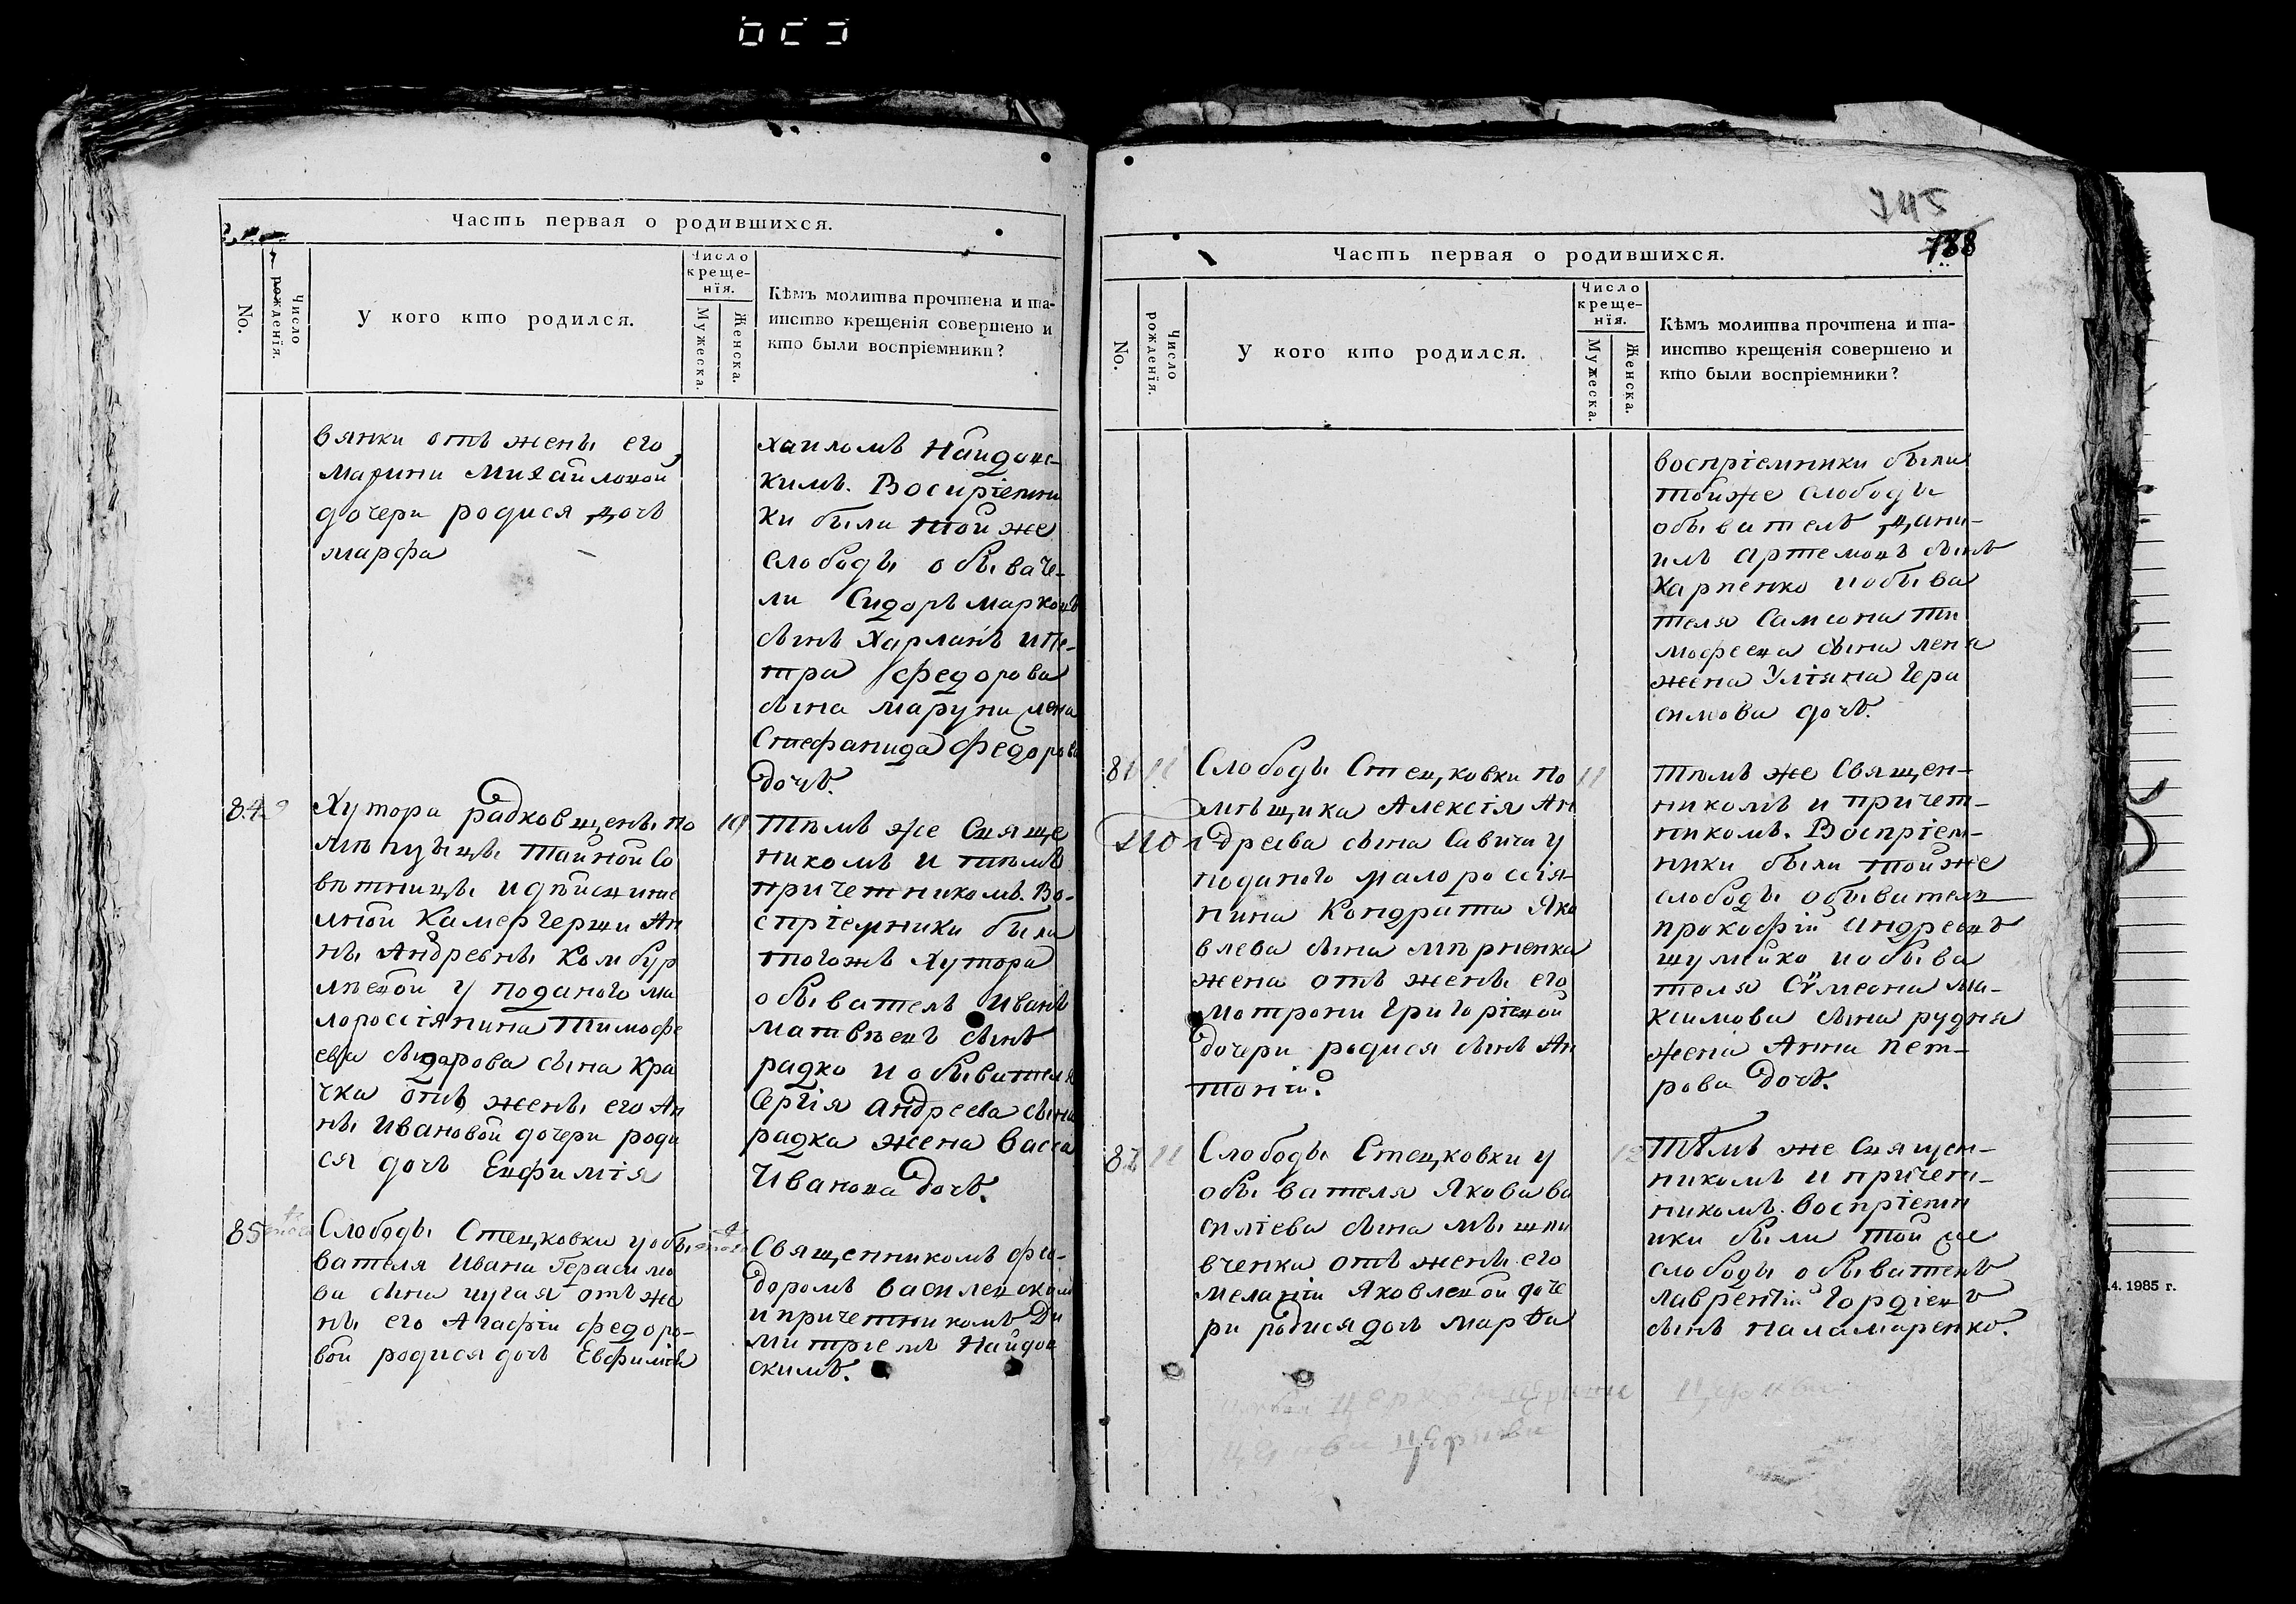 Часть первая о родившихся.
No.
Число рожденія.
У кого кто родился.
Число
креще-
нія.
Мужеска.
Женска.
Кѣмъ молитва прочтена и та-
инство крещенія совершено и
кто были воспріемники?
вянки отъ жены его
Марини Михайловой
дочери родися дочь
марфа
хаиломъ Найдовс-
кимъ. Воспріемни
ки были той же
слободы обывате-
ли Сидоръ марковъ
сынъ Харланъ и Пе-
тра федорова
сына маруни жена
Стефанида федорова
дочь.
84
Хутора радковщены по
мѣщицы тайной Со
вѣтницы и дѣйствите
лной Камергерши Ан
ны Андревны Комбур
лѣевой у поданого ма
лороссіянина Тимофе
ева сидарова сына Кра
чка отъ жены его Ан
ны Ивановой дочери роди
ся дочь Евфимія
10
Тѣмъ же Свяще
никомъ и тѣмъ
причетникомъ. Во-
спріемники были
тогожъ Хутора
обыватель Иванъ
матвѣевъ сынъ
радко и обывателя
Сергія Андреева сына
радка жена васса
Иванова дочь.
85
Слободы Стецковки у обы
вателя Ивана Герасимо
ва сына чугая отъ же
ны его Агафіи федоро-
вой родися дочь Евфимія
Священникомъ фео-
доромъ василевскимъ
и причетникомъ Ди
митріемъ Найдов
скимъ.
745
788
Часть первая о родившихся.
No.
Число рожденія.
У кого кто родился.
Число
креще-
нія.
Мужеска.
Женска.
Кѣмъ молитва прочтена и та-
инство крещенія совершено и
кто были воспріемники?
воспріемники были
тойже слободы
обыватель Дани-
илъ Артемовъ сынъ
Харпенко и обыва
теля Самсона Ти
мофеева сына леня
жена Уліяна Гера
симова дочь.
11
Слободы Стецковки по
мѣщика Алексія Ан
дреева сына Савича у
поданого малороссія-
нина Кондрата Яко
влева сына мѣрненка
жена отъ жены его
мотрони григоріевой
дочери родися сынъ Ан
тоній.
11
тѣмъ же Священ-
никомъ и причет-
никомъ. Воспріем-
ники были тойже
слободы обыватель
прокофій Андреевъ
шумейко и обыва
теля Сѵмеона ма-
ксимова сына рудня
жена Анна пет-
рова дочь.
87
11
Слободы Стецковки у
обывателя Якова ва
силіева сына мѣшни
вченка отъ жены его
меланіи Яковлевой доче
ри родися дочь марѳа
12
тѣмъ же Священ-
никомъ и причет-
никомъ. воспріемн
ики были той же
слободы обыватель
лаврентій Гордіевъ
сынъ паламаренко.
4. 1985 г.